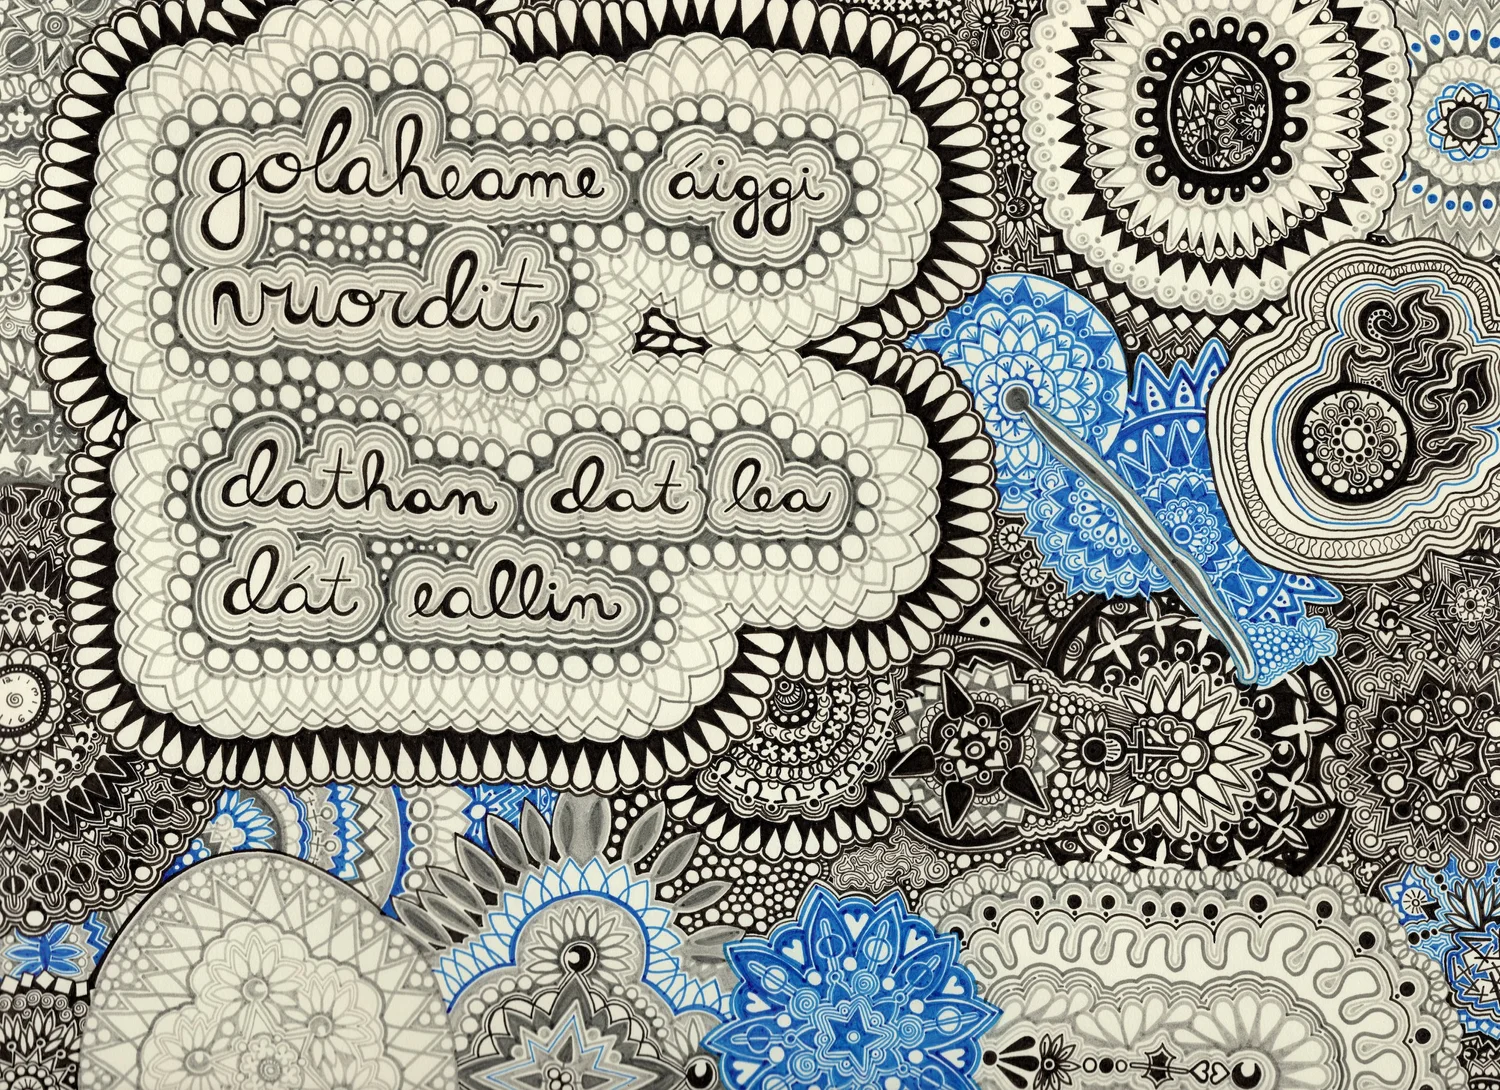 golaheame áiggi
vuordit
dathan dat lea
dát eallin